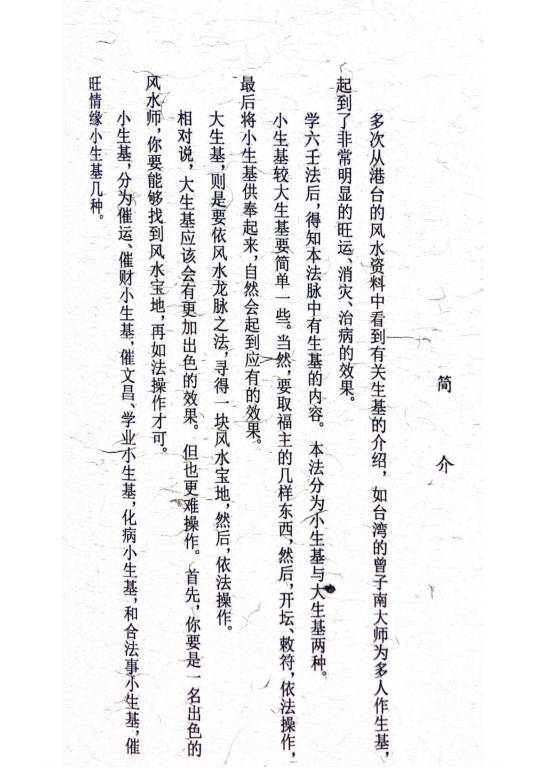 简介
多次从港台的风水资料中看到有关生基的介绍，如台湾的曾子南大师为多人作生基，
起到了非常明显的旺运、消灾、治病的效果。
学六壬法后，得知本法脉中有生基的内容。本法分为小生基与大生基两种。
小生基较大生基要简单一些。当然，要取福主的几样东西，然后，开坛、敕符，依法操作，
最后将小生基供奉起来，自然会起到应有的效果。
大生基，则是要依风水龙脉之法，寻得一块风水宝地，然后，依法操作。
相对说，大生基应该会有更加出色的效果。但也更难操作。首先，你要是一名出色的
风水师，你要能够找到风水宝地，再如法操作才可。
小生基，分为催运、催财小生基，催文昌、学业小生基，化病小生基，和合法事小生基，催
旺情缘小生基几种。